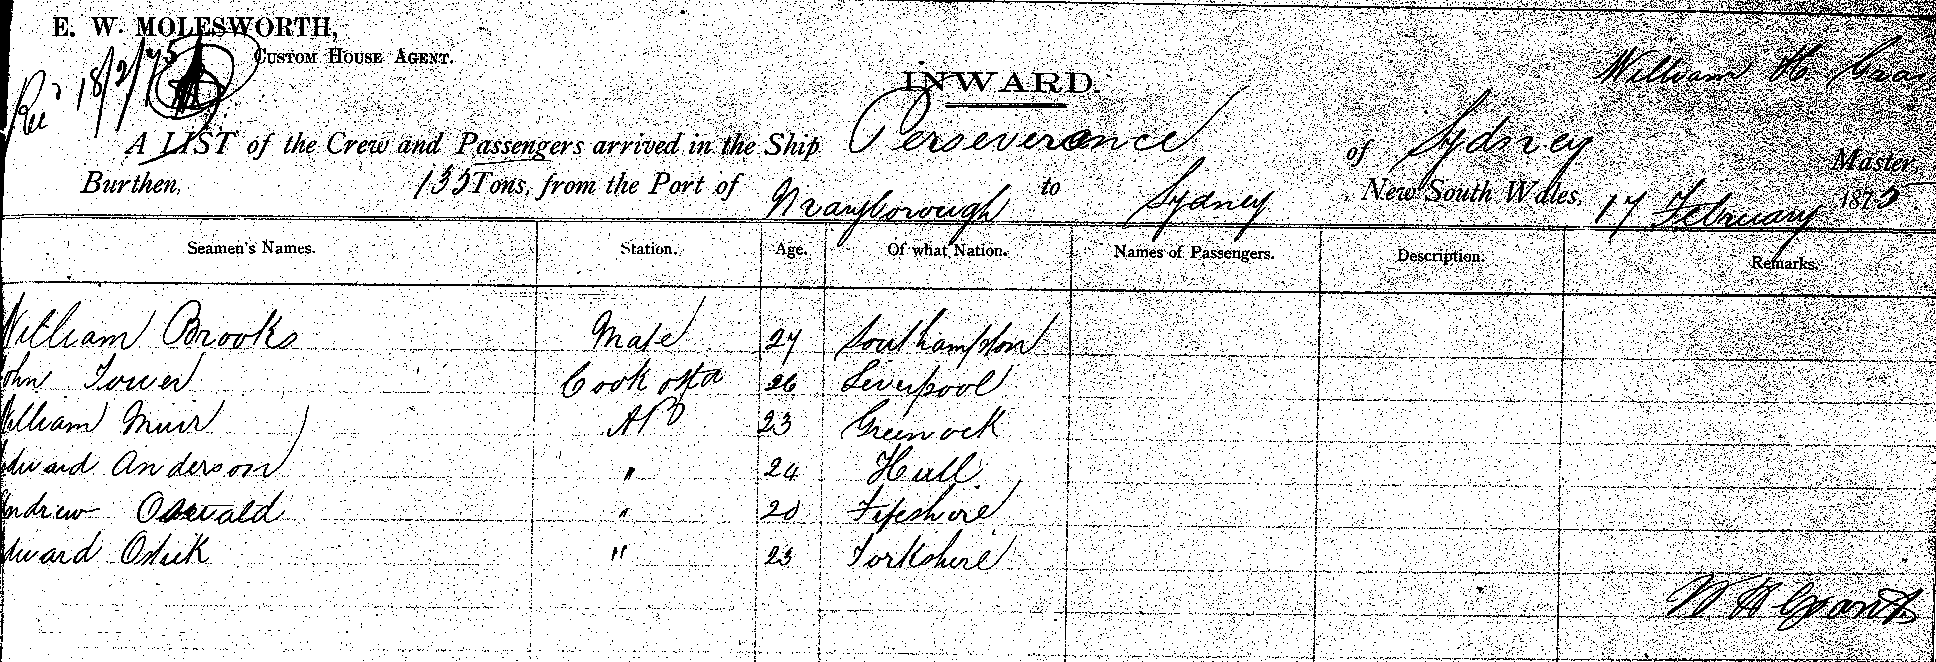 E. W. MOLESWORTH,
CUSTOM HOUSE AGENT.
18/2/75
INWARD.
William H. Gran
A LIST of the Crew and Passengers arrived in the Ship Perseverance of Sydney Master,
Burthen, 135 Tons, from the Port of Maryborough to Sydney, New South Wales, 17 February 1875.
Seamen's Names. Station. Age. Of what Nation. Names of Passengers. Description. Remarks.
William Brooks Mate 27 Southampton
ohn Tower Cook 26 Liverpool
William Muir AB 23 Greenock
dward Anderson " 24 Hull
Andrew Oswald " 20 Fifeshire
dward " 23 Yorkshire
W H Grant